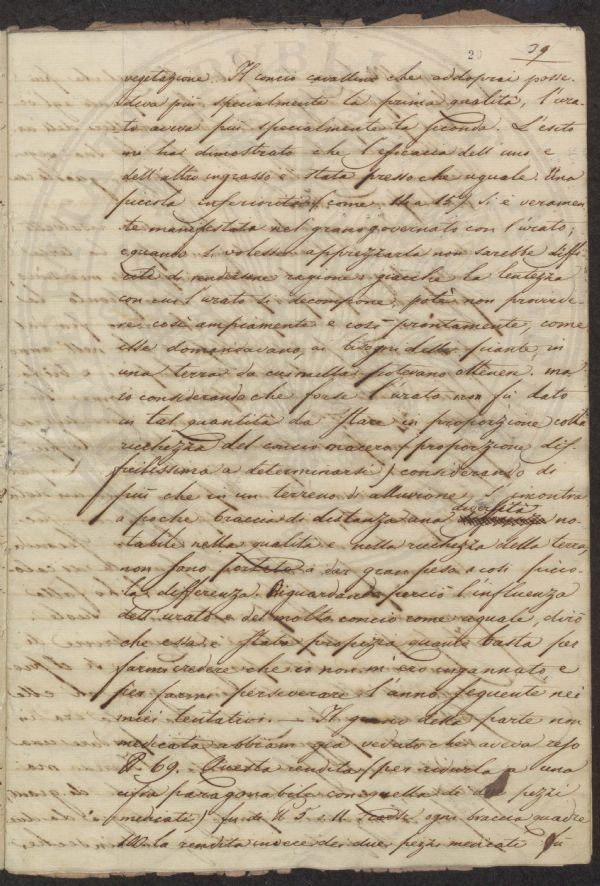 29 29
vegetazione. Il concio cavallino che addoprai posse-
deva più specialmente la prima qualità, l'ura-
to aveva più specialmente la seconda. L'esito
mi ha dimostrato che l'efficacia dell'uno e
dell'altro ingrasso è stata pressochè uguale. Una
piccola inferiorità (come 14 a 15) si è veramen-
te manifestata nel grano governato con l'urato;
e quando si volesse apprezzarla non sarebbe diffi-
cile di rendersene ragione; giacchè la lentezza
con cui l'urato si decompone, potè non provvede-
re così ampiamente e così prontamente, come
esse domandavano, ai bisogni delle piante, in
una terra da cui nulla potevano ottenere, ma
io considerando che forse l'urato non fù dato
in tal quantità da stare in proporzione colla
ricchezza del concio macero (proporzione dif-
ficilissima a determinarsi) considerando di
più che in un terreno di alluvione s'incontra
a poche braccia di distanza una diversità no-
tabile nella qualità e nella ricchezza della terra,
non sono portato a dar gran peso a così picco-
la differenza. Riguardando perciò l'influenza
dell'urato e del molto concio come uguale, dirò
che essa è stata propizia quanto basta per
farmi credere che io non m'ero ingannato, e
per farmi perseverare l'anno seguente nei
miei tentativi. — Il grano della parte non
medicata abbiam già veduto che aveva reso
69. Questa rendita (per ridurla a una
cifra paragonabile con quella di due pezzi
medicati) fu di 5 11 ogni braccia quadre
100 la rendita invece dei due pezzi medicati fù